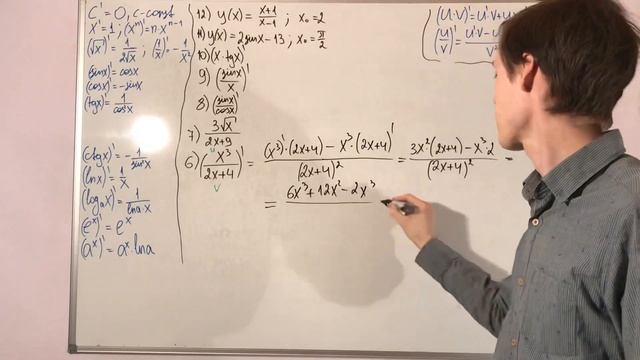 C' = 0, c - const
x' = 1; (xⁿ)' = n·xⁿ⁻¹
(√x)' = 1/(2√x); (1/x)' = -1/x²
(sinx)' = cosx
(cosx)' = -sinx
(tgx)' = 1/cos²x
(ctgx)' = -1/sin²x
(lnx)' = 1/x
(logₐx)' = 1/(lna·x)
(eˣ)' = eˣ
(aˣ)' = aˣ·lna
12) y(x) = (x+1)/(x-1); x₀ = 2
11) y(x) = 2sinx - 13; x₀ = π/2
10) (x·tgx)'
9) (sinx/x)'
8) (sinx/cosx)'
7) 3√x/(2x+9)
6) (x³/(2x+4))' = ((x³)'·(2x+4) - x³·(2x+4)')/(2x+4)² = (3x²(2x+4) - x³·2)/(2x+4)² =
v
= 6x³ + 12x² - 2x³
(U·V)' = U'·V + U
(U/V)' = U'V - U / V²